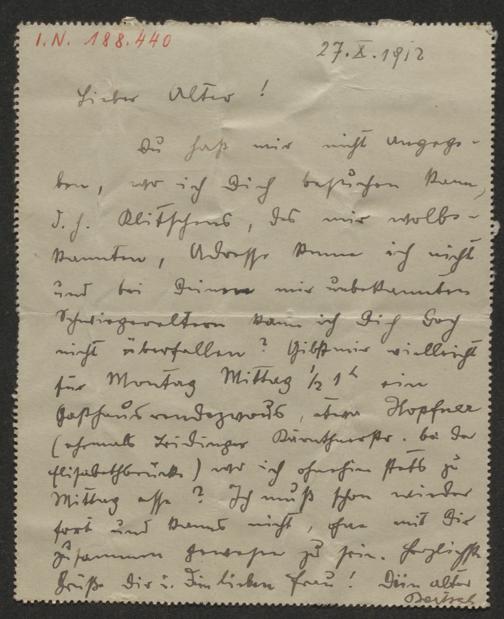 I.N. 188.440
27.X.1912
Lieber Alter!
Du hast mir nicht angege-
ben, wo ich Dich besuchen kann,
d.h. Klitschens, des mir wolbe-
kannten, Adresse kenne ich nicht
und bei Deinen mir unbekannten
Schwiegereltern kann ich Dich doch
nicht überfallen? Gibst mir vielleicht
für Montag Mittag ½ 1ʰ ein
Gasthausrendezvous, etwa Hopfner
(ehemals Leidinger Kärnthnerstr. bei der
Elisabethbrücke) wo ich ohnehin stets zu
Mittag esse? Ich muß schon wieder
fort und kanns nicht, ohne mit Dir
zusammen gewesen zu sein. Herzlichste
Grüße Dir u. Din lieben Frau! Dein alter